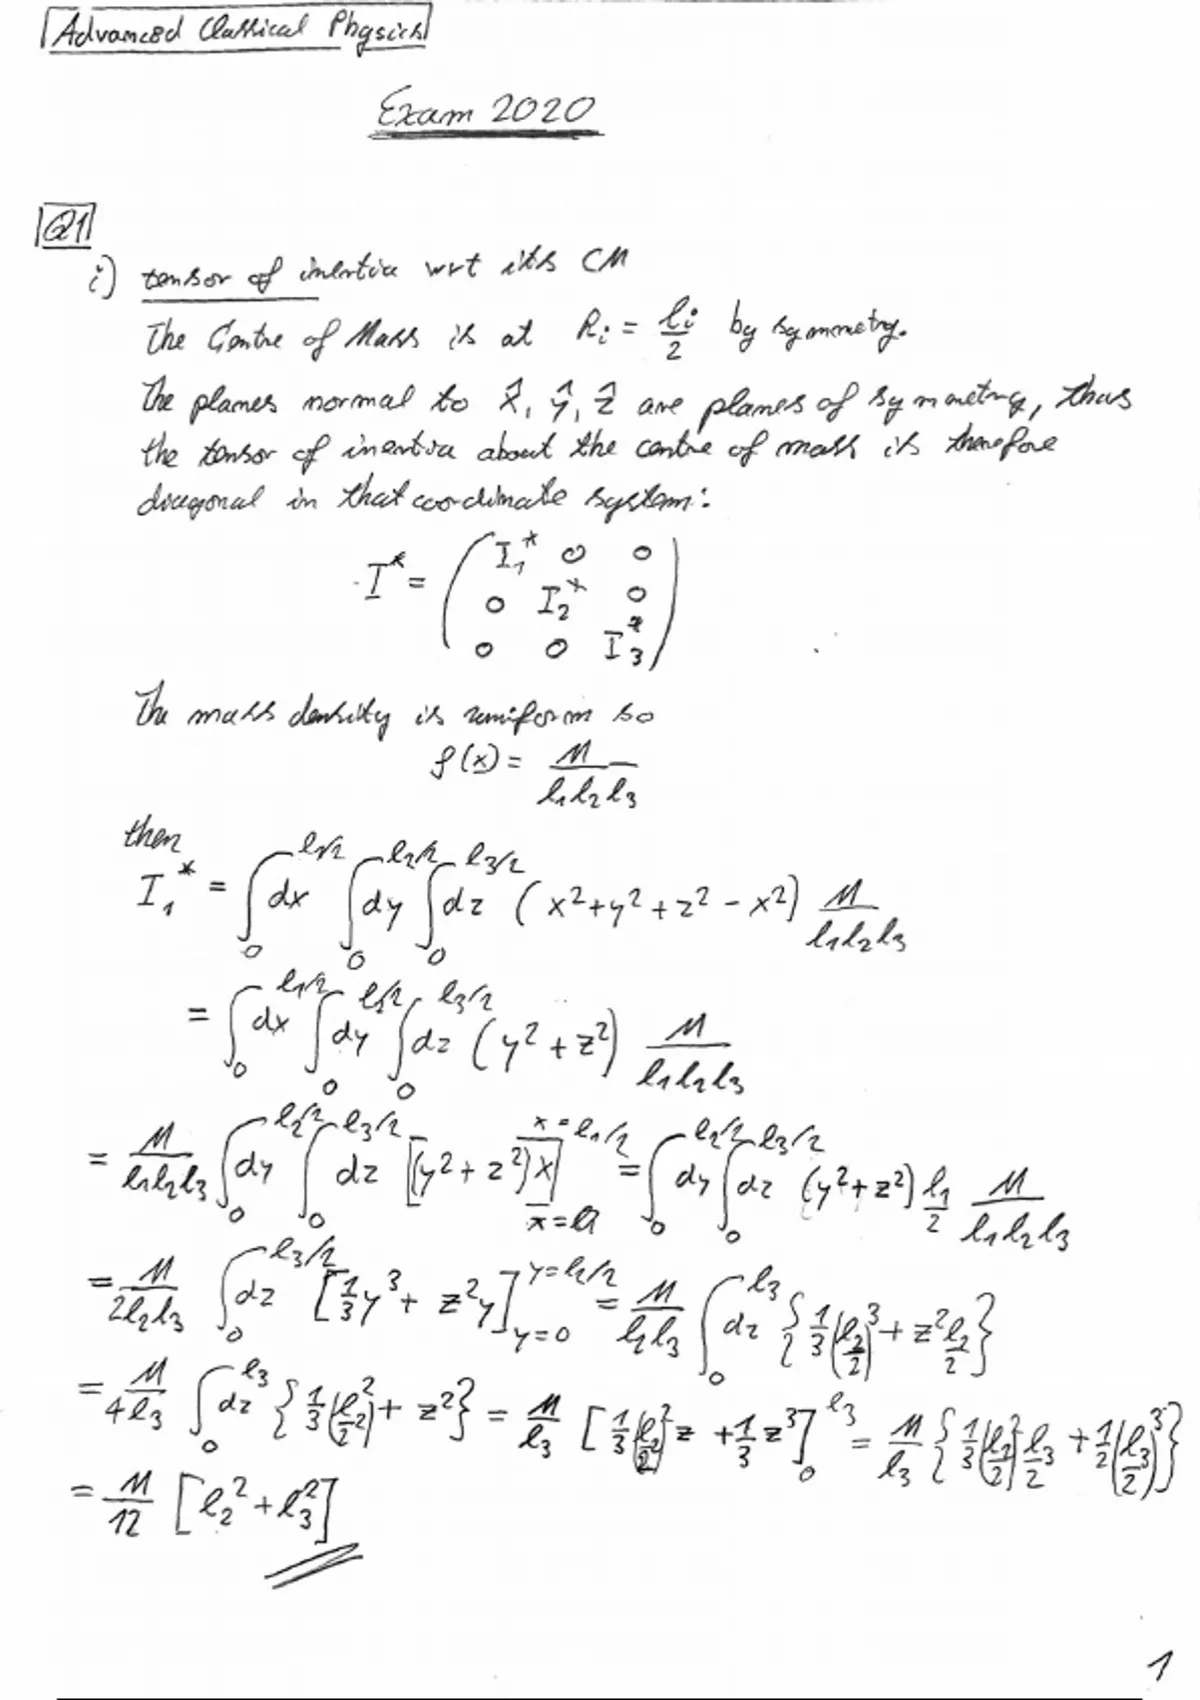 Advanced Classical Physics
Exam 2020
Q1
i) tensor of inertia wrt its CM
The Centre of Mass is at R_i = l_i/2 by symmetry.
The planes normal to x̂, ŷ, ẑ are planes of symmetry, thus
the tensor of inertia about the centre of mass is therefore
diagonal in that coordinate system:
I* = ( I₁* 0 0
0 I₂* 0
0 0 I₃* )
The mass density is uniform so
ρ(x) = M / l₁l₂l₃
then
I₁* = ∫₀^{l₁/2} dx ∫₀^{l₂/2} dy ∫₀^{l₃/2} dz (x² + y² + z² - x²) M / l₁l₂l₃
= ∫₀^{l₁/2} dx ∫₀^{l₂/2} dy ∫₀^{l₃/2} dz (y² + z²) M / l₁l₂l₃
= M / l₁l₂l₃ ∫₀^{l₂/2} dy ∫₀^{l₃/2} dz [(y² + z²)x]_{x=0}^{x=l₁/2} = ∫₀^{l₂/2} dy ∫₀^{l₃/2} dz (y² + z²) l₁/2 M / l₁l₂l₃
= M / 2l₂l₃ ∫₀^{l₃/2} dz [1/3 y³ + z²y]_{y=0}^{y=l₂/2} = M / l₂l₃ ∫₀^{l₃} dz {1/3 (l₂/2)³ + z² l₂/2}
= M / 4l₃ ∫₀^{l₃} dz {1/3 (l₂/2)² + z²} = M / l₃ [1/3 (l₂/2)² z + 1/3 z³]₀^{l₃} = M / l₃ {1/3 (l₂/2)² l₃/2 + 1/2 (l₃/2)³}
= M/12 [l₂² + l₃²]
1